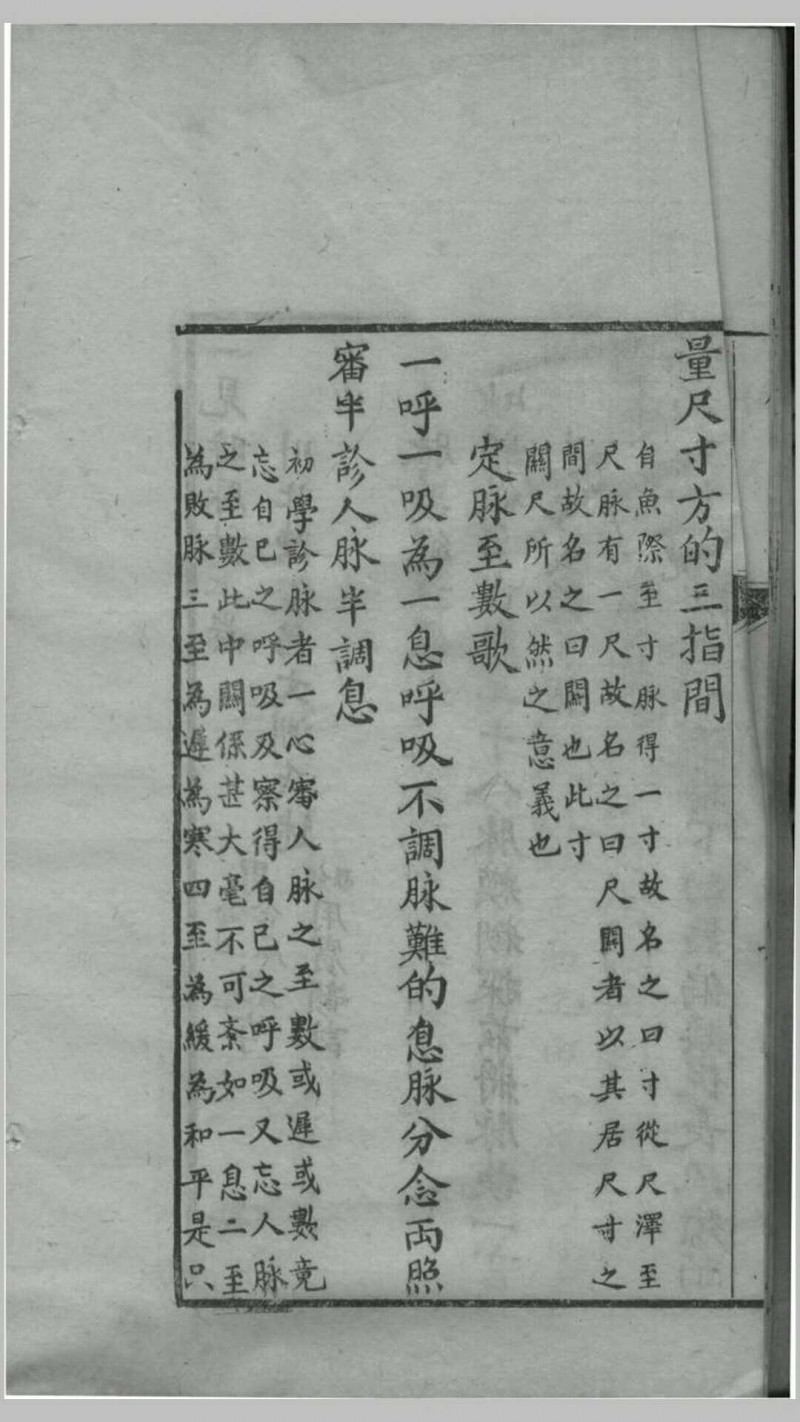 量尺寸方的三指間
自魚際至寸脉得一寸故名之曰寸從尺澤至
尺脉有一尺故名之曰尺關者以其居尺寸之
間故名之曰關也此寸
關尺所以然之意義也
定脉至數歌
一呼一吸為一息呼吸不調脉難的息脉分念两照
審半診人脉半調息
初學診脉者一心審人脉之至數或遲或數竟
忘自已之呼吸及察得自已之呼吸又忘人脉
之至數此中關係甚大毫不可紊如一息二至
為敗脉三至為遲為寒四至為緩為和平是只